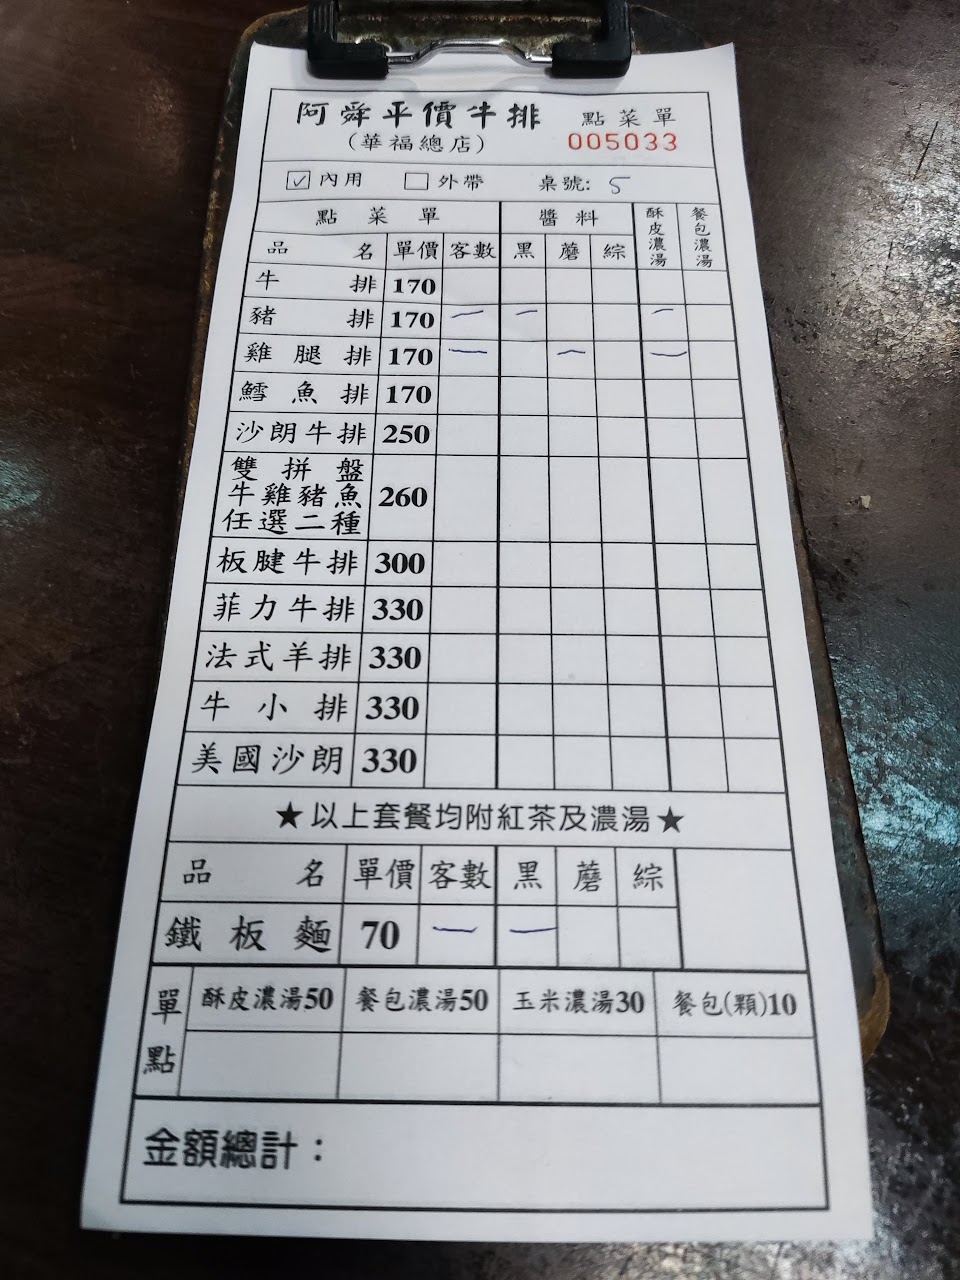 阿舜平價牛排 點菜單
(華福總店) 005033
☑ 內用 ☐ 外帶 桌號: 5
點菜單 醬料 酥皮濃湯 餐包濃湯
品名 單價 客數 黑 蘑 綜
牛排 170
豬排 170 一 一 一
雞腿排 170 一 一 一
鱈魚排 170
沙朗牛排 250
雙拼盤
牛雞豬魚 260
任選二種
板腱牛排 300
菲力牛排 330
法式羊排 330
牛小排 330
美國沙朗 330
★以上套餐均附紅茶及濃湯★
品名 單價 客數 黑 蘑 綜
鐵板麵 70 一 一
單點 酥皮濃湯50 餐包濃湯50 玉米濃湯30 餐包(顆)10
金額總計：